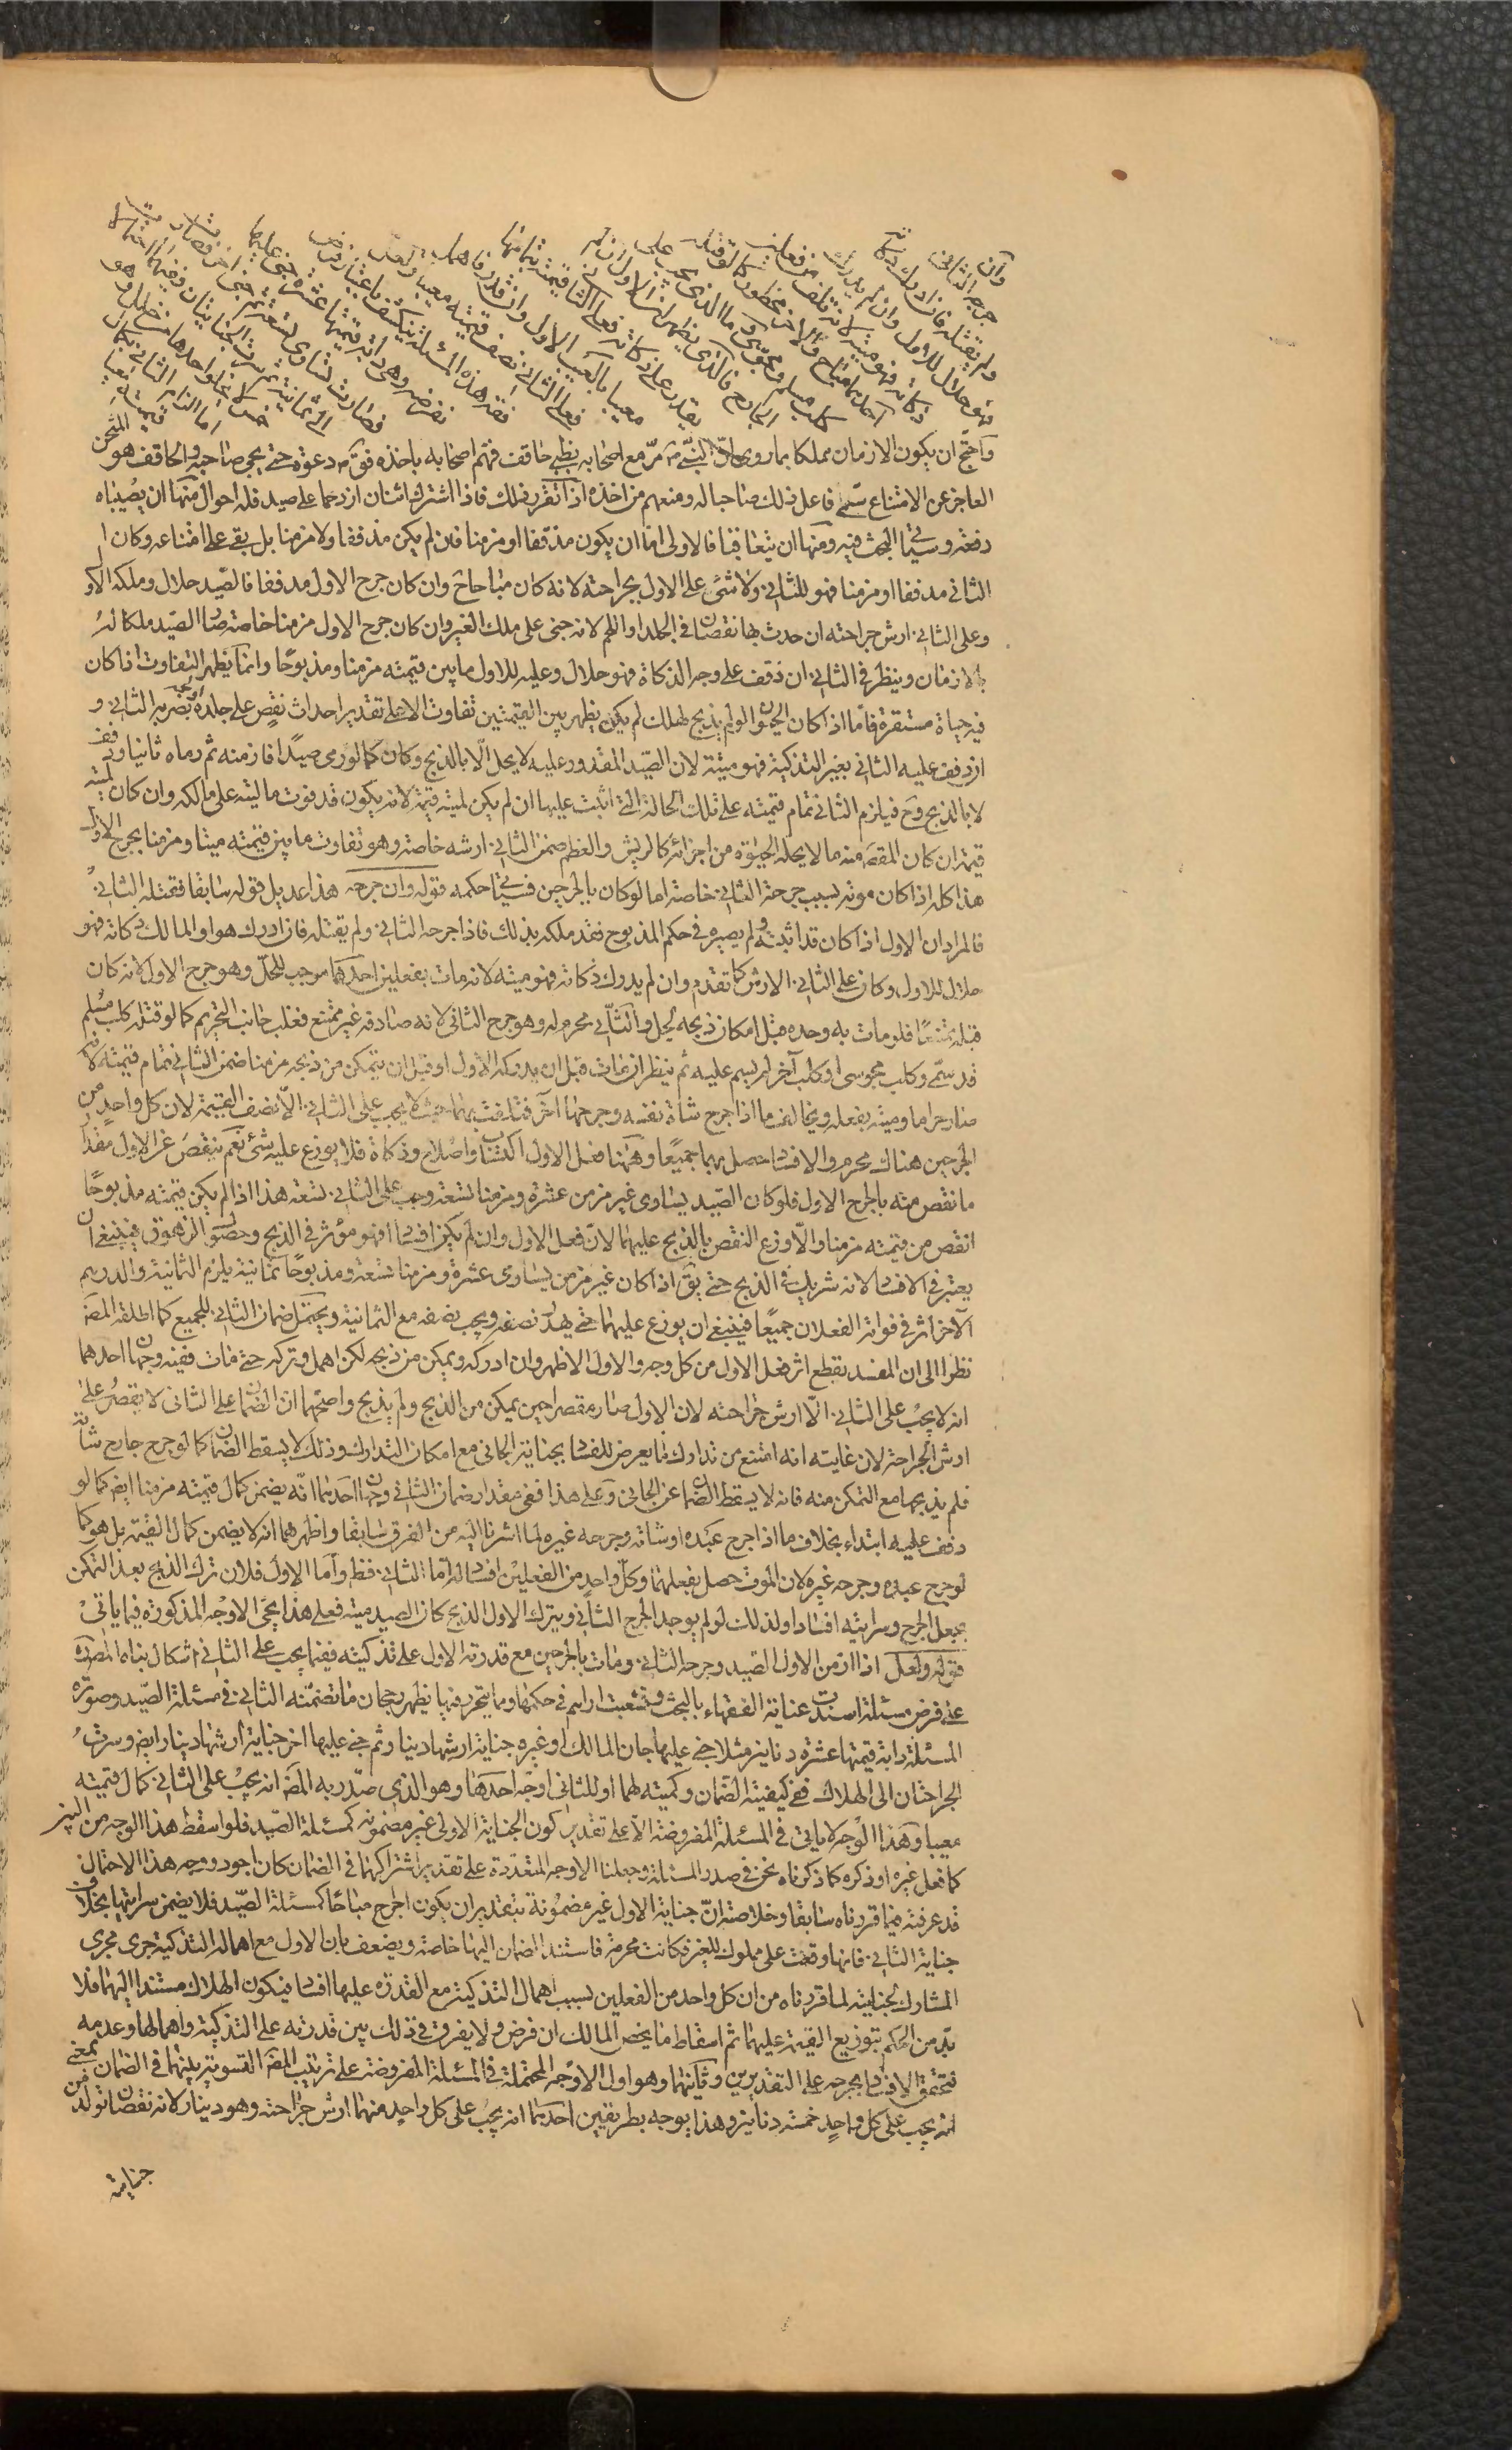 وان
جرحه الثاني
ولم يقتله فان ادرك ذكاته
فهو حلال للاول وان لم يدرك
ذكاته فهو ميتة لانه تلف من فعلين
احدهما مباح والاخر محظور كما لو قتله
كلب مسلم ومجوسى وما الذى يجب على
الجارح فالذى يظهر ان الاول ان لم
يقدر على ذكاته فعلى الثاني قيمته بتمامها
معيبا بالعيب الاول وان قدر فاهمل
فعلى الثاني نصف قيمته معيبا ولعل
فقه هذه المسئلة ينكشف باعتبار فرض
نفرضه وهى دابة قيمتها عشرة جنى عليها
فصارت تساوى تسعة ثم جنى اخر فصارت
الى ثمانية ثم سرت الجنايتان ففيها احتمالات
خمس لا يخلو احدها من خلل وهو
اما الزام الثاني بكمال
قيمته معيبا
واحتج ان يكون الازمان مملكا بما روى ان النبي ص مر مع اصحابه بظبى حاقف فهم اصحابه باخذه فقال ص دعوه حتى يجى صاحبه والحاقف هو المثخن
العاجز عن الامتناع سمى فاعل ذلك صاحبا له ومنعهم من اخذه اذا تقرر ذلك فاذا اشترك اثنان ازدحما على صيد فله احوال منها ان يصيباه
دفعة وسياتى البحث فيه ومنها ان يتعاقبا فالاول اما ان يكون مذففا او مزمنا فان لم يكن مذففا ولا مزمنا بل بقى على امتناعه وكان
الثاني مذففا او مزمنا فهو للثاني ولا شئ على الاول بجراحته لانه كان مباحا ح وان كان جرح الاول مذففا فالصيد حلال وملكه الاو
وعلى الثاني ارش جراحته ان حدث بها نقصان فى الجلد او اللحم لانه جنى على ملك الغير وان كان جرح الاول مزمنا خاصة صار الصيد ملكا له
بالازمان وينظر فى الثاني ان ذفف على وجه الذكاة فهو حلال وعليه للاول ما بين قيمته مزمنا ومذبوحا وانما يظهر التفاوت اذا كان
فيه حياة مستقرة فاما اذا كان الحيوان لو لم يذبح لهلك لم يكن يظهر بين القيمتين تفاوت الا على تقدير احداث نقص على جلده ونحوه بضربة الثاني و
ان ذفف عليه الثاني بغير التذكية فهو ميتة لان الصيد المقدور عليه لا يحل الا بالذبح وكان كما لو رمى صيدا فازمنه ثم رماه ثانيا وذفف
لا بالذبح وح فيلزم الثاني تمام قيمته على تلك الحالة التى اثبت عليها ان لم يكن لميته قيمة لانه يكون قد فوت ماليته على مالكه وان كان لميته
قيمة ان كان المقص منه ما لا يحله الحيوة من اجزائه كالريش والعظم ضمن الثاني ارشه خاصة وهو تفاوت ما بين قيمته ميتا ومزمنا بجرح الاول
هذا كله اذا كان موته بسبب جرحة الثاني خاصة اما لو كان بالجرحين فسياتى حكمه قوله وان جرحه هذا عديل قوله سابقا فقتله الثاني
فالمراد ان الاول اذا كان قد اثبته ولم يصيره فى حكم المذبوح فقد ملكه بذلك فاذا جرحه الثاني ولم يقتله فان ادرك هو او المالك ذكاته فهو
حلال للاول وكان على الثاني الارش كما تقدم وان لم يدرك ذكاته فهو ميتة لانه مات بفعلين احدهما موجب للحل وهو جرح الاول لانه كان
قبله ممتنعا فلو مات به وحده قبل امكان ذبحه لحل والثاني محرم له وهو جرح الثاني لانه صادفه غير ممتنع فغلب جانب التحريم كما لو قتله كلب مسلم
قد سمى وكلب مجوسى او كلب آخر لم يسم عليه ثم ينظر ان مات قبل ان يدركه الاول او قبل ان يتمكن من ذبحه مزمنا ضمن الثاني تمام قيمته لانه
صار حراما وميتة بفعله ويخالف ما اذا جرح شاة نفسه وجرحها آخر فتلفت بهما حيث لا يجب على الثاني الا نصف القيمة لان كل واحد من
الجرحين هناك محرم والافساد حصل بهما جميعا وههنا فعل الاول اكتساب واصلاح وذكاة فلا يوزع عليه شئ نعم ينقص عن الاول مقدار
ما نقص منه بالجرح الاول فلو كان الصيد يساوى غير مزمن عشرة ومزمنا تسعة وجب على الثاني تسعة هذا اذا لم يكن قيمته مذبوحا
انقص من قيمته مزمنا والا وزع النقص بالذبح عليهما لان فعل الاول وان لم يكن افسادا فهو مؤثر فى الذبح وحصول الزهوق فينبغى ان
يعتبر فى الافساد لانه شريك فى الذبح حتى يق اذا كان غير مزمن يساوى عشرة ومزمنا تسعة ومذبوحا ثمانية يلزم الثمانية والدرهم
الآخر اثر فى فواته الفعلان جميعا فينبغى ان يوزع عليهما حتى يهدر نصفه ويجب نصفه مع الثمانية ويحتمل ضمان الثاني للجميع كما اطلقه المص
نظرا الى ان المفسد يقطع اثر فعل الاول من كل وجه والاول الاظهر وان ادركه وتمكن من ذبحه لكن اهمل وتركه حتى مات ففيه وجهان احدهما
انه لا يجب على الثاني الا ارش جراحته لان الاول صار مقصرا حين تمكن من الذبح ولم يذبح واصحهما ان الضمان على الثاني لا يقصر على
ارش الجراحة لان غايته انه امتنع من تدارك ما يعرض للفساد بجناية الجانى مع امكان التدارك وذلك لا يسقط الضمان كما لو جرح جارح شاته
فلم يذبحها مع التمكن منه فانه لا يسقط الضمان عن الجانى وعلى هذا ففى مقدار ضمان الثاني وجهان احدهما انه يضمن كمال قيمته مزمنا ايض كما لو
ذفف عليه ابتداء بخلاف ما اذا جرح عبده او شاته وجرحه غيره لما اشرنا اليه من الفرق سابقا واظهرهما انه لا يضمن كمال القيمة بل هو كما
لو جرح عبده وجرحه غيره لان الموت حصل بفعلهما وكل واحد من الفعلين افساد اما الثاني فظ واما الاول فلان ترك الذبح بعد التمكن
يجعل الجرح وسرايته افسادا ولذلك لو لم يوجد الجرح الثاني وترك الاول الذبح كان الصيد ميتة فعلى هذا يجئ الاوجه المذكورة فيما ياتى
قوله ولعل اذا ازمن الاول الصيد وجرحه الثاني ومات بالجرحين مع قدرة الاول على تذكيته ففيما يجب على الثاني اشكال بناه المص ره
على فرض مسئلة اسندت عناية الفقهاء بالبحث وتشعبت اراهم فى حكمها وما يتحرر فيها يظهر رجحان ما تضمنته الثاني فى مسئلة الصيد وصورة
المسئلة دابة قيمتها عشرة دنانير مثلا جنى عليها جان المالك او غيره جناية ارشها دينار ثم جنى عليها اخر جناية ارشها دينار ايض وسرت
الجراحتان الى الهلاك ففى كيفية الضمان وكميته لهما او للثاني اوجه احدها وهو الذى صدر به المص انه يجب على الثاني كمال قيمته
معيبا وهذا الوجه لا ياتى فى المسئلة المفروضة الا على تقدير كون الجناية الاولى غير مضمونة كمسئلة الصيد فلو اسقط هذا الوجه من البين
كما فعل غيره او ذكره كما ذكرناه نحن فى صدر المسئلة وجعلنا الاوجه المتعددة على تقدير اشتراكهما فى الضمان كان اجود ووجه هذا الاحتمال
قد عرفته فيما قررناه سابقا وخلاصته ان جناية الاول غير مضمونة بتقدير ان يكون الجرح مباحا كمسئلة الصيد فلا يضمن سرايتها بخلاف
جناية الثاني فانها وقعت على مملوك للغير فكانت محرمة فاستند الضمان اليها خاصة ويضعف بان الاول مع اهماله التذكية جرى مجرى
المشارك بجنايته لما قررناه من ان كل واحد من الفعلين بسبب اهمال التذكية مع القدرة عليها افساد فيكون الهلاك مستندا اليهما فلا
بد من الحكم بتوزيع القيمة عليهما ثم اسقاط ما يخص المالك ان فرض ولا يفرق فى ذلك بين قدرته على التذكية واهمالها وعدمه
فتحقق الافساد بجرحه على التقديرين وثانيها وهو اول الاوجه المحتملة فى المسئلة المفروضة على ترتيب المص التسوية بينهما فى الضمان بمعنى
انه يجب على كل واحد خمسة دنانير وهذا يوجه بطريقين احدهما انه يجب على كل واحد منهما ارش جراحته وهو دينار لانه نقصان تولد من
جنايته